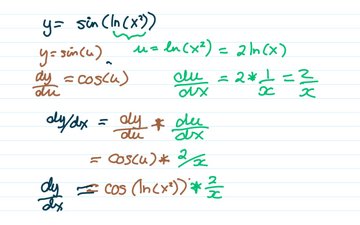 y = sin(ln(x²))
y = sin(u) u = ln(x²) = 2ln(x)
dy/du = cos(u) du/dx = 2 * 1/x = 2/x
dy/dx = dy/du * du/dx
= cos(u) * 2/x
dy/dx = cos(ln(x²)) * 2/x